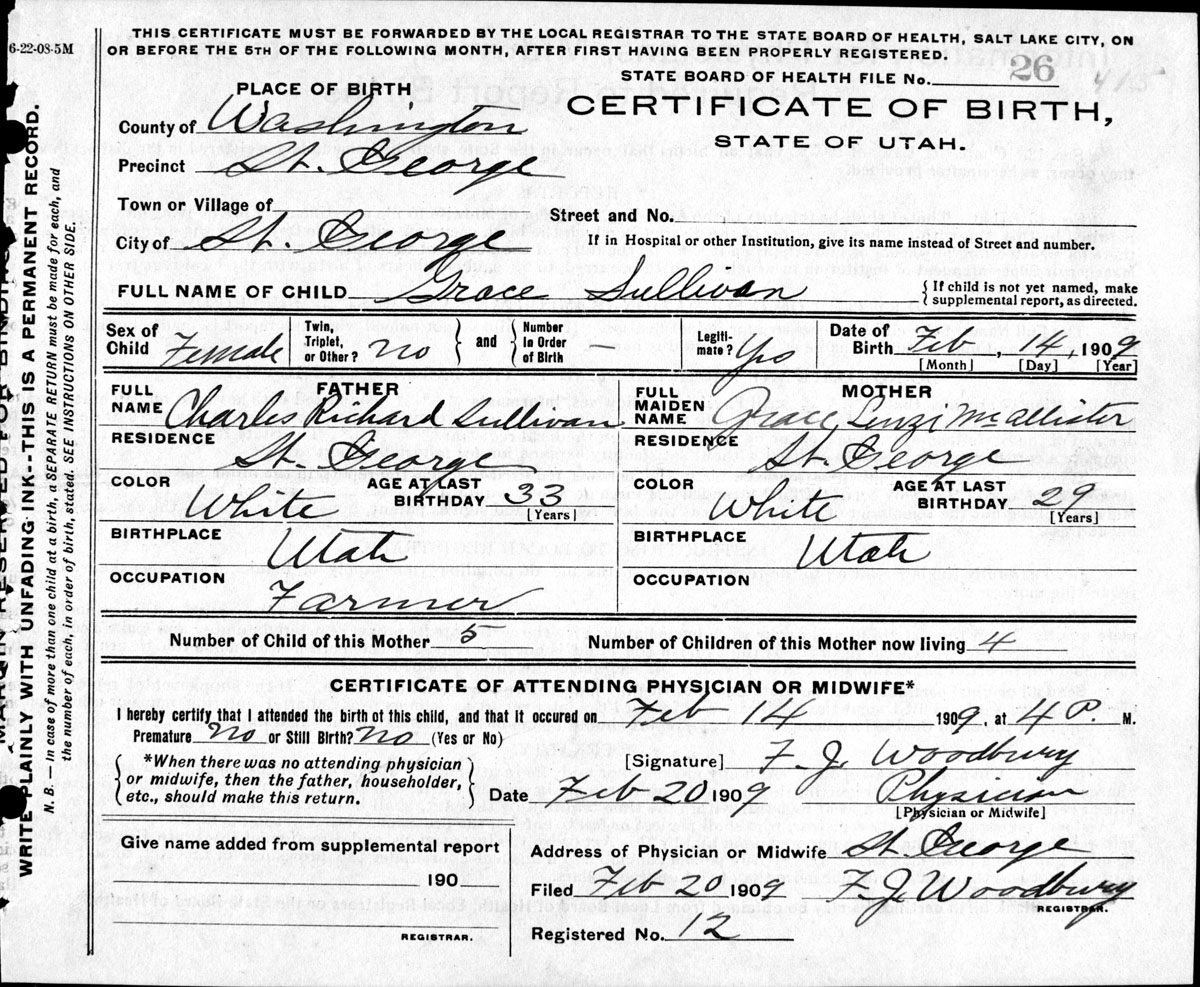 6-22-08-5M
THIS CERTIFICATE MUST BE FORWARDED BY THE LOCAL REGISTRAR TO THE STATE BOARD OF HEALTH, SALT LAKE CITY, ON
OR BEFORE THE 5TH OF THE FOLLOWING MONTH, AFTER FIRST HAVING BEEN PROPERLY REGISTERED.
STATE BOARD OF HEALTH FILE No. 26
PLACE OF BIRTH
CERTIFICATE OF BIRTH,
STATE OF UTAH.
County of Washington
Precinct St. George
Town or Village of
Street and No.
City of St. George
If in Hospital or other Institution, give its name instead of Street and number.
FULL NAME OF CHILD Grace Sullivan
{ If child is not yet named, make
supplemental report, as directed.
Sex of Child Female
Twin, Triplet, or Other? No } and { Number In Order of Birth —
Legiti-mate? Yes
Date of Birth Feb, 14, 1909
[Month] [Day] [Year]
FATHER
FULL NAME Charles Richard Sullivan
RESIDENCE St. George
COLOR White AGE AT LAST BIRTHDAY 33
[Years]
BIRTHPLACE Utah
OCCUPATION Farmer
MOTHER
FULL MAIDEN NAME Grace Lenzi McAllister
RESIDENCE St. George
COLOR White AGE AT LAST BIRTHDAY 29
[Years]
BIRTHPLACE Utah
OCCUPATION
Number of Child of this Mother 5 Number of Children of this Mother now living 4
CERTIFICATE OF ATTENDING PHYSICIAN OR MIDWIFE*
I hereby certify that I attended the birth of this child, and that it occured on Feb 14 1909, at 4 P. M.
Premature No or Still Birth? No (Yes or No)
{ *When there was no attending physician
or midwife, then the father, householder,
etc., should make this return. }
[Signature] F. J. Woodbury
Date Feb 20 1909 Physician
[Physician or Midwife]
Give name added from supplemental report
190
REGISTRAR.
Address of Physician or Midwife St. George
Filed Feb 20 1909 F J Woodbury
REGISTRAR.
Registered No. 12
WRITE PLAINLY WITH UNFADING INK---THIS IS A PERMANENT RECORD.
N. B. — In case of more than one child at a birth, a SEPARATE RETURN must be made for each, and
the number of each, in order of birth, stated. SEE INSTRUCTIONS ON OTHER SIDE.